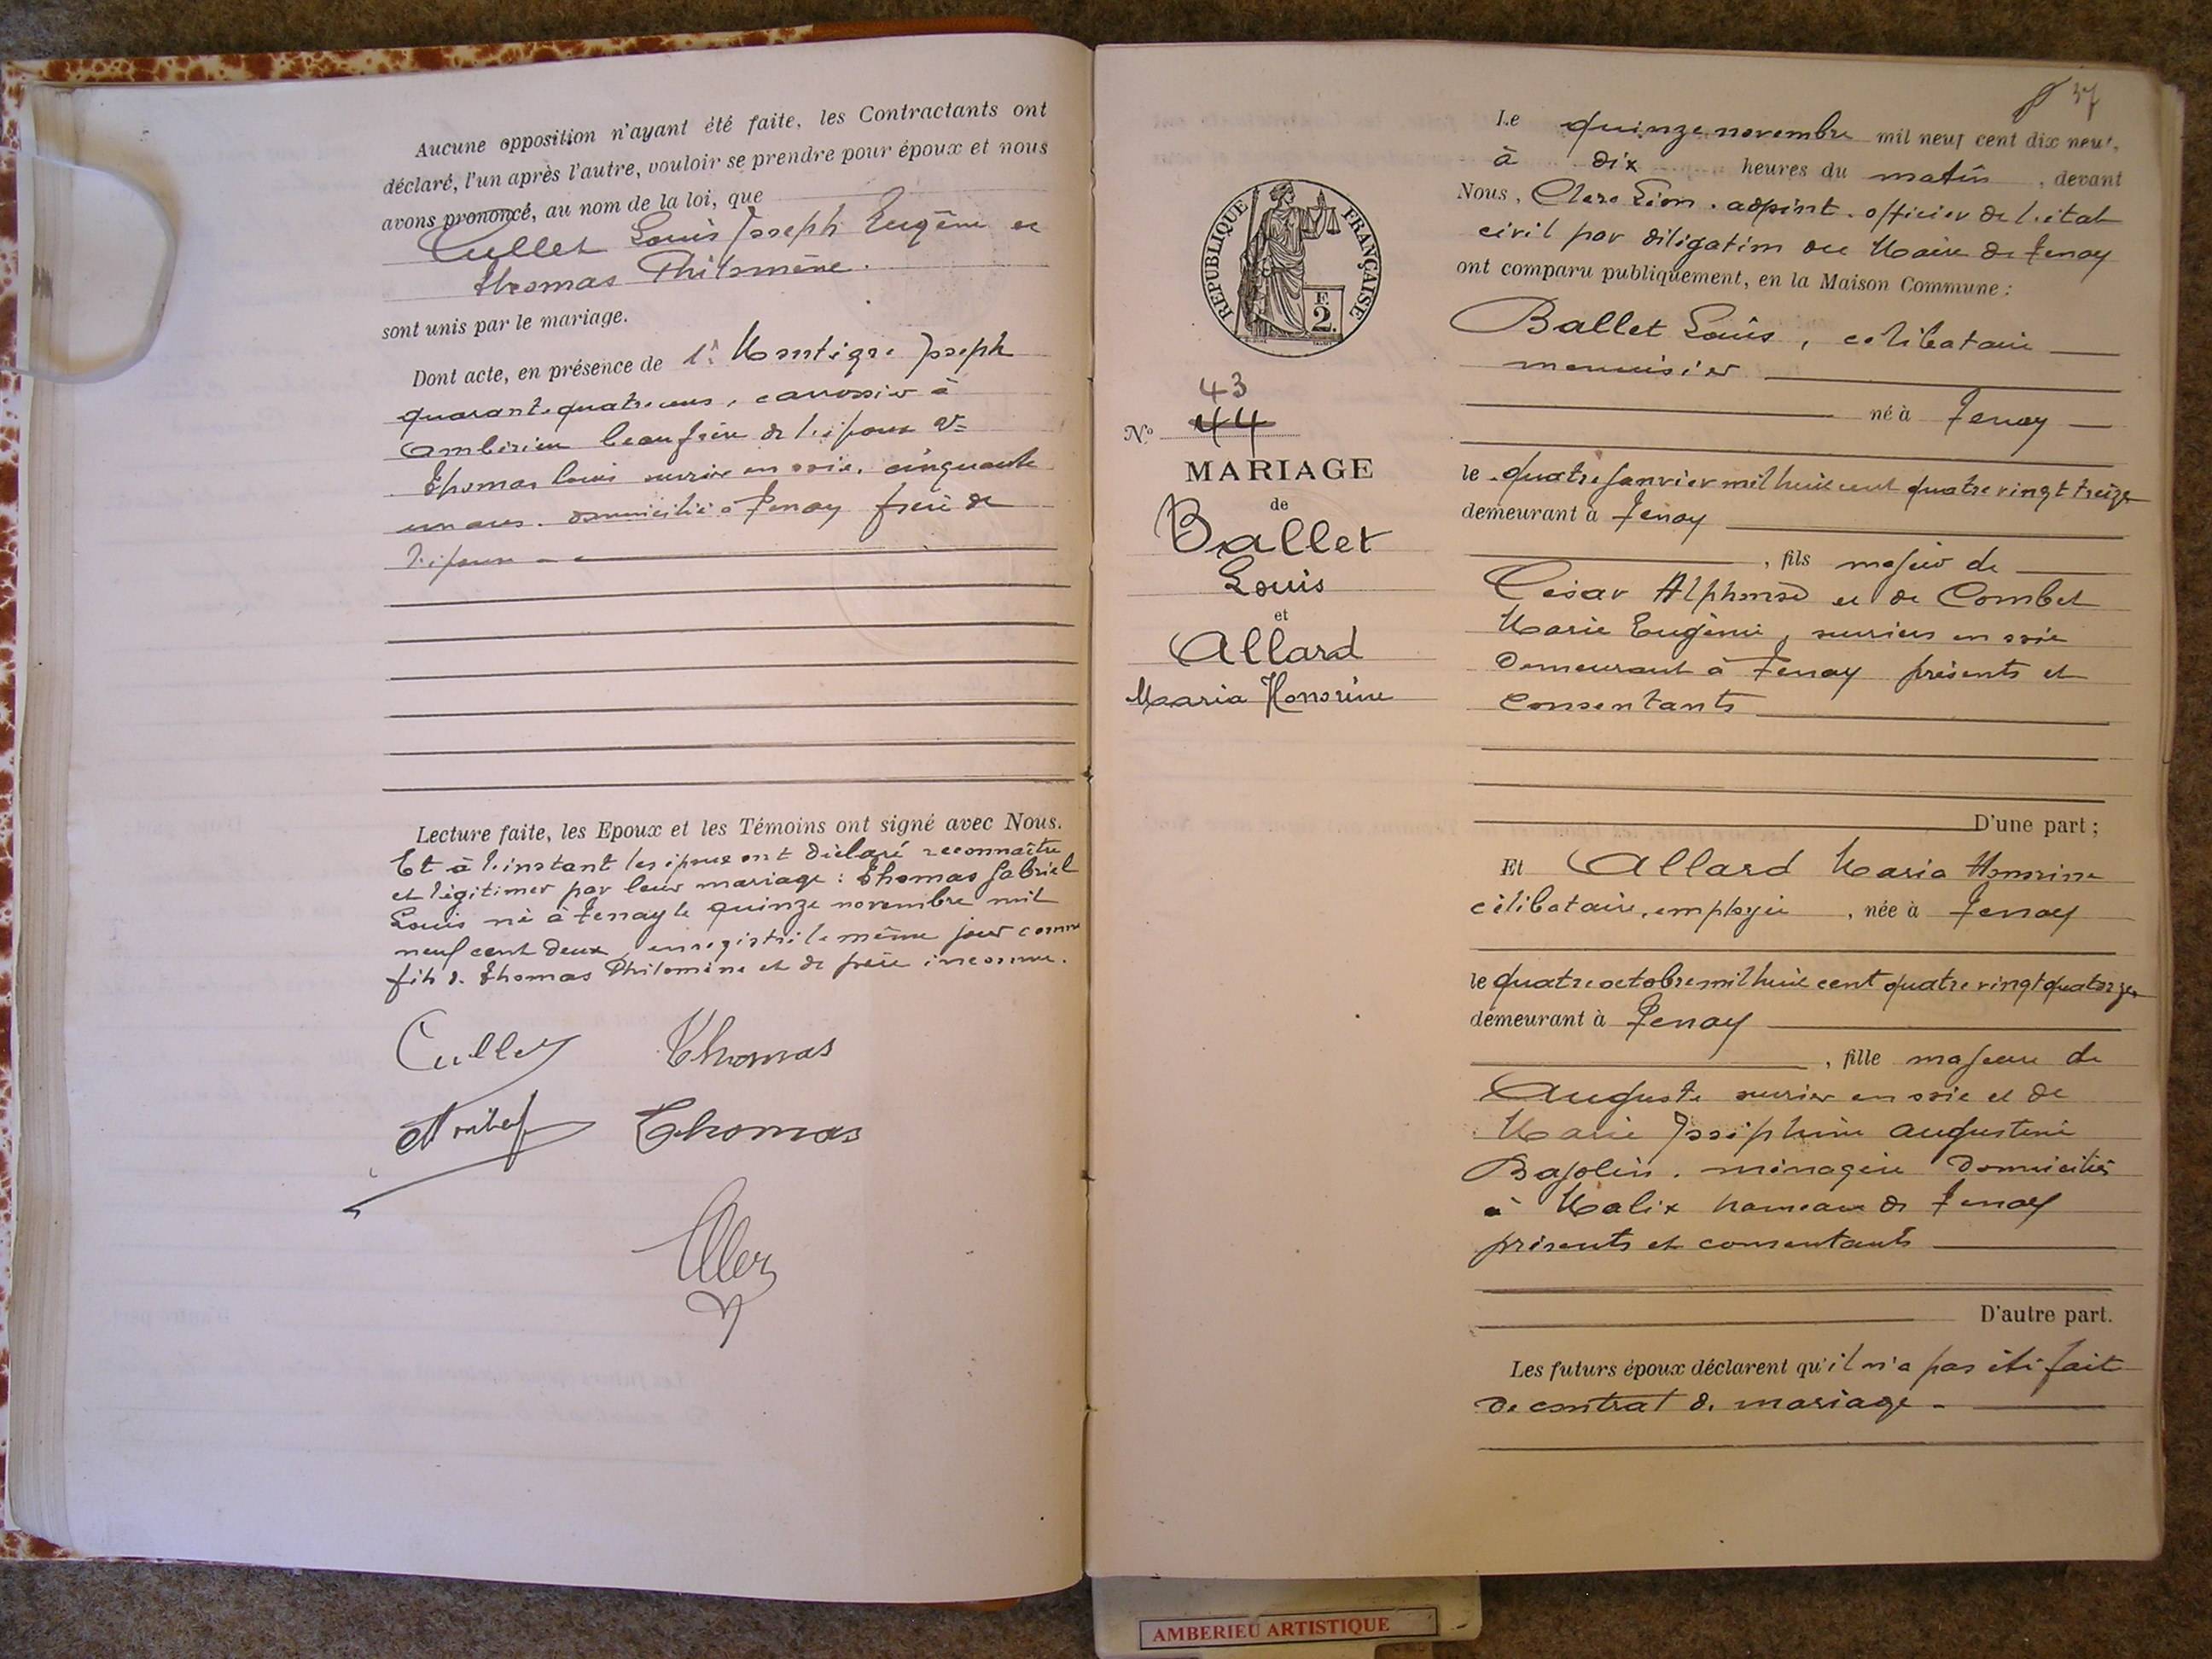 Aucune opposition n'ayant été faite, les Contractants ont
déclaré, l'un après l'autre, vouloir se prendre pour époux et nous
avons prononcé, au nom de la loi, que
Cullet Louis Joseph Eugène et
Thomas Philomène.
sont unis par le mariage.
Dont acte, en présence de 1° Joseph
quarante quatre ans, carrossier à
Ambérieu beau frère de l'époux 2°
Thomas Louis ouvrier en soie, cinquante
un ans. domicilié à Tenay frère de
l'épouse
Lecture faite, les Epoux et les Témoins ont signé avec Nous.
Et à l'instant les époux ont déclaré reconnaître
et légitimer par leur mariage : Thomas Gabriel
Louis né à Tenay le quinze novembre mil
neuf cent deux, enregistré le même jour comme
fils de Thomas Philomène et de père inconnu.
Cullet Thomas
Thomas
37
Le quinze novembre mil neuf cent dix neuf,
à dix heures du matin, devant
Nous, Clerc Léon. adjoint. officier de l'état
civil par délégation du Maire de Tenay
ont comparu publiquement, en la Maison Commune :
Ballet Louis, célibataire
menuisier
né à Tenay
le quatre Janvier mil huit cent quatre vingt treize
demeurant à Tenay
, fils majeur de
César Alphonse et de Combet
Marie Eugénie, ouvriers en soie
demeurant à Tenay présents et
consentants
D'une part ;
Et Allard Maria Honorine
célibataire, employée, née à Tenay
le quatre octobre mil huit cent quatre vingt quatorze
demeurant à Tenay
, fille majeure de
Auguste ouvrier en soie et de
Marie Joséphine Augustine
Bajolin. ménagère domiciliés
à Malix hameau de Tenay
présents et consentants
D'autre part.
Les futurs époux déclarent qu'il n'a pas été fait
de contrat de mariage.
RÉPUBLIQUE FRANÇAISE
F.
2.
43
N° 44
MARIAGE
de
Ballet
Louis
et
Allard
Maria Honorine
AMBERIEU ARTISTIQUE